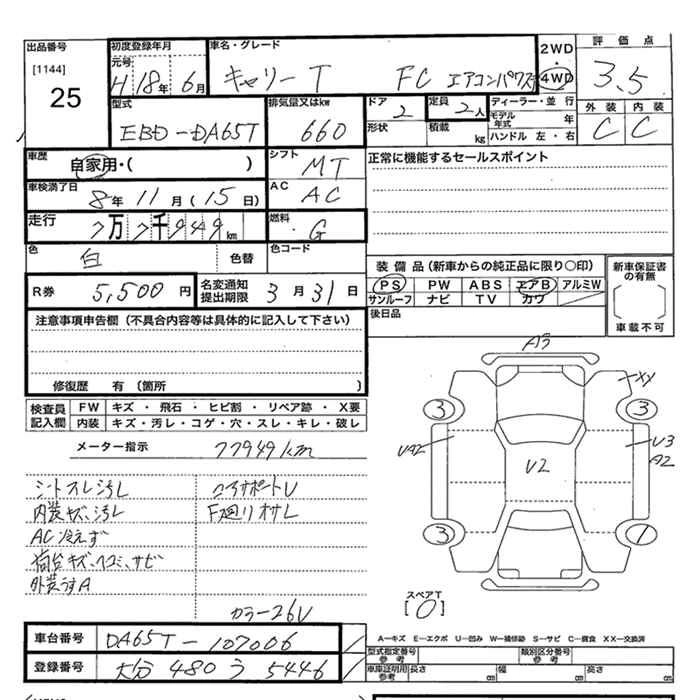 出品番号 初度登録年月 車名・グレード 2WD 評価点
[1144] 元号 H 18年 6月 キャリー T FC エアコンパワステ 4WD 3.5
25 外装 内装
型式 排気量又はkw ドア 2 定員 2人 ディーラー・並行 C C
EBD-DA65T 660 形状 積載 kg モデル年式 年
ハンドル 左・右
車歴 自家用・( ) シフト MT 正常に機能するセールスポイント
車検満了日 8年 11月 (15日) AC AC
走行 7万 7千 949 km 燃料 G
色 白 色替 色コード
装備品 (新車からの純正品に限り○印) 新車保証書の有無
R券 5,500円 名変通知提出期限 3月 31日 PS PW ABS エアB アルミW
サンルーフ ナビ TV カワ 車載不可
注意事項申告欄 (不具合内容等は具体的に記入して下さい) 後日品
修復歴 有 (箇所 )
検査員 FW キズ・飛石・ヒビ割・リペア跡・X要
記入欄 内装 キズ・汚レ・コゲ・穴・スレ・キレ・破レ
メーター指示 77949km
A3
XY
3 3
UA2 U2 U3
A2
3 1
シートスレ汚レ コアサポートU
内装キズ、汚レ F廻りオサレ
AC冷えず
荷台キズ、ヘコミ、サビ
外装うすA
カラー26V
スペアT
[0]
A—キズ E—エクボ U—凹み W—補修跡 S—サビ C—腐食 XX—交換済
車台番号 DA65T-107006 型式指定番号 参考 類別区分番号 参考
登録番号 大分 480 う 5446 車庫証明用参考 長さ cm 幅 cm 高さ cm